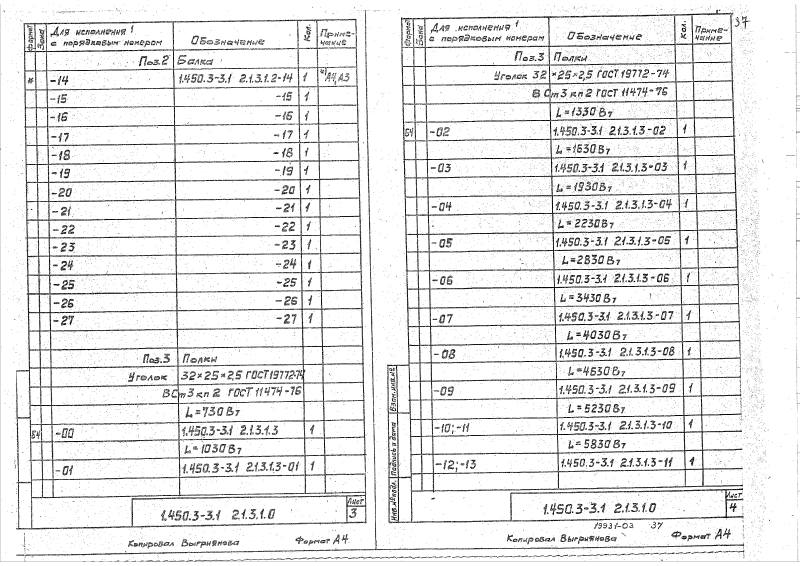 Формат Зона Для исполнения 1 с порядковым номером Обозначение Кол. Примечание
Поз.2 Балка
* -14 1.450.3-3.1 2.1.3.1.2-14 1 *)А4,А3
-15 -15 1
-16 -16 1
-17 -17 1
-18 -18 1
-19 -19 1
-20 -20 1
-21 -21 1
-22 -22 1
-23 -23 1
-24 -24 1
-25 -25 1
-26 -26 1
-27 -27 1
Поз.3 Полки
Уголок 32×25×2,5 ГОСТ 19772-74
ВСт3кп2 ГОСТ 11474-76
L=730 Вт
БЧ -00 1.450.3-3.1 2.1.3.1.3 1
L=1030 Вт
-01 1.450.3-3.1 2.1.3.1.3-01 1
1.450.3-3.1 2.1.3.1.0 Лист 3
Копировал Выгриянова Формат А4
37
Формат Зона Для исполнения 1 с порядковым номером Обозначение Кол. Примечание
Поз.3 Полки
Уголок 32×25×2,5 ГОСТ 19772-74
ВСт3кп2 ГОСТ 11474-76
L=1330 Вт
БЧ -02 1.450.3-3.1 2.1.3.1.3-02 1
L=1630 Вт
-03 1.450.3-3.1 2.1.3.1.3-03 1
L=1930 Вт
-04 1.450.3-3.1 2.1.3.1.3-04 1
L=2230 Вт
-05 1.450.3-3.1 2.1.3.1.3-05 1
L=2830 Вт
-06 1.450.3-3.1 2.1.3.1.3-06 1
L=3430 Вт
-07 1.450.3-3.1 2.1.3.1.3-07 1
L=4030 Вт
-08 1.450.3-3.1 2.1.3.1.3-08 1
L=4630 Вт
-09 1.450.3-3.1 2.1.3.1.3-09 1
L=5230 Вт
-10;-11 1.450.3-3.1 2.1.3.1.3-10 1
L=5830 Вт
-12;-13 1.450.3-3.1 2.1.3.1.3-11 1
Инв.№подл. Подпись и дата Взам.инв.№
1.450.3-3.1 2.1.3.1.0 Лист 4
19931-03 37
Копировал Выгриянова Формат А4